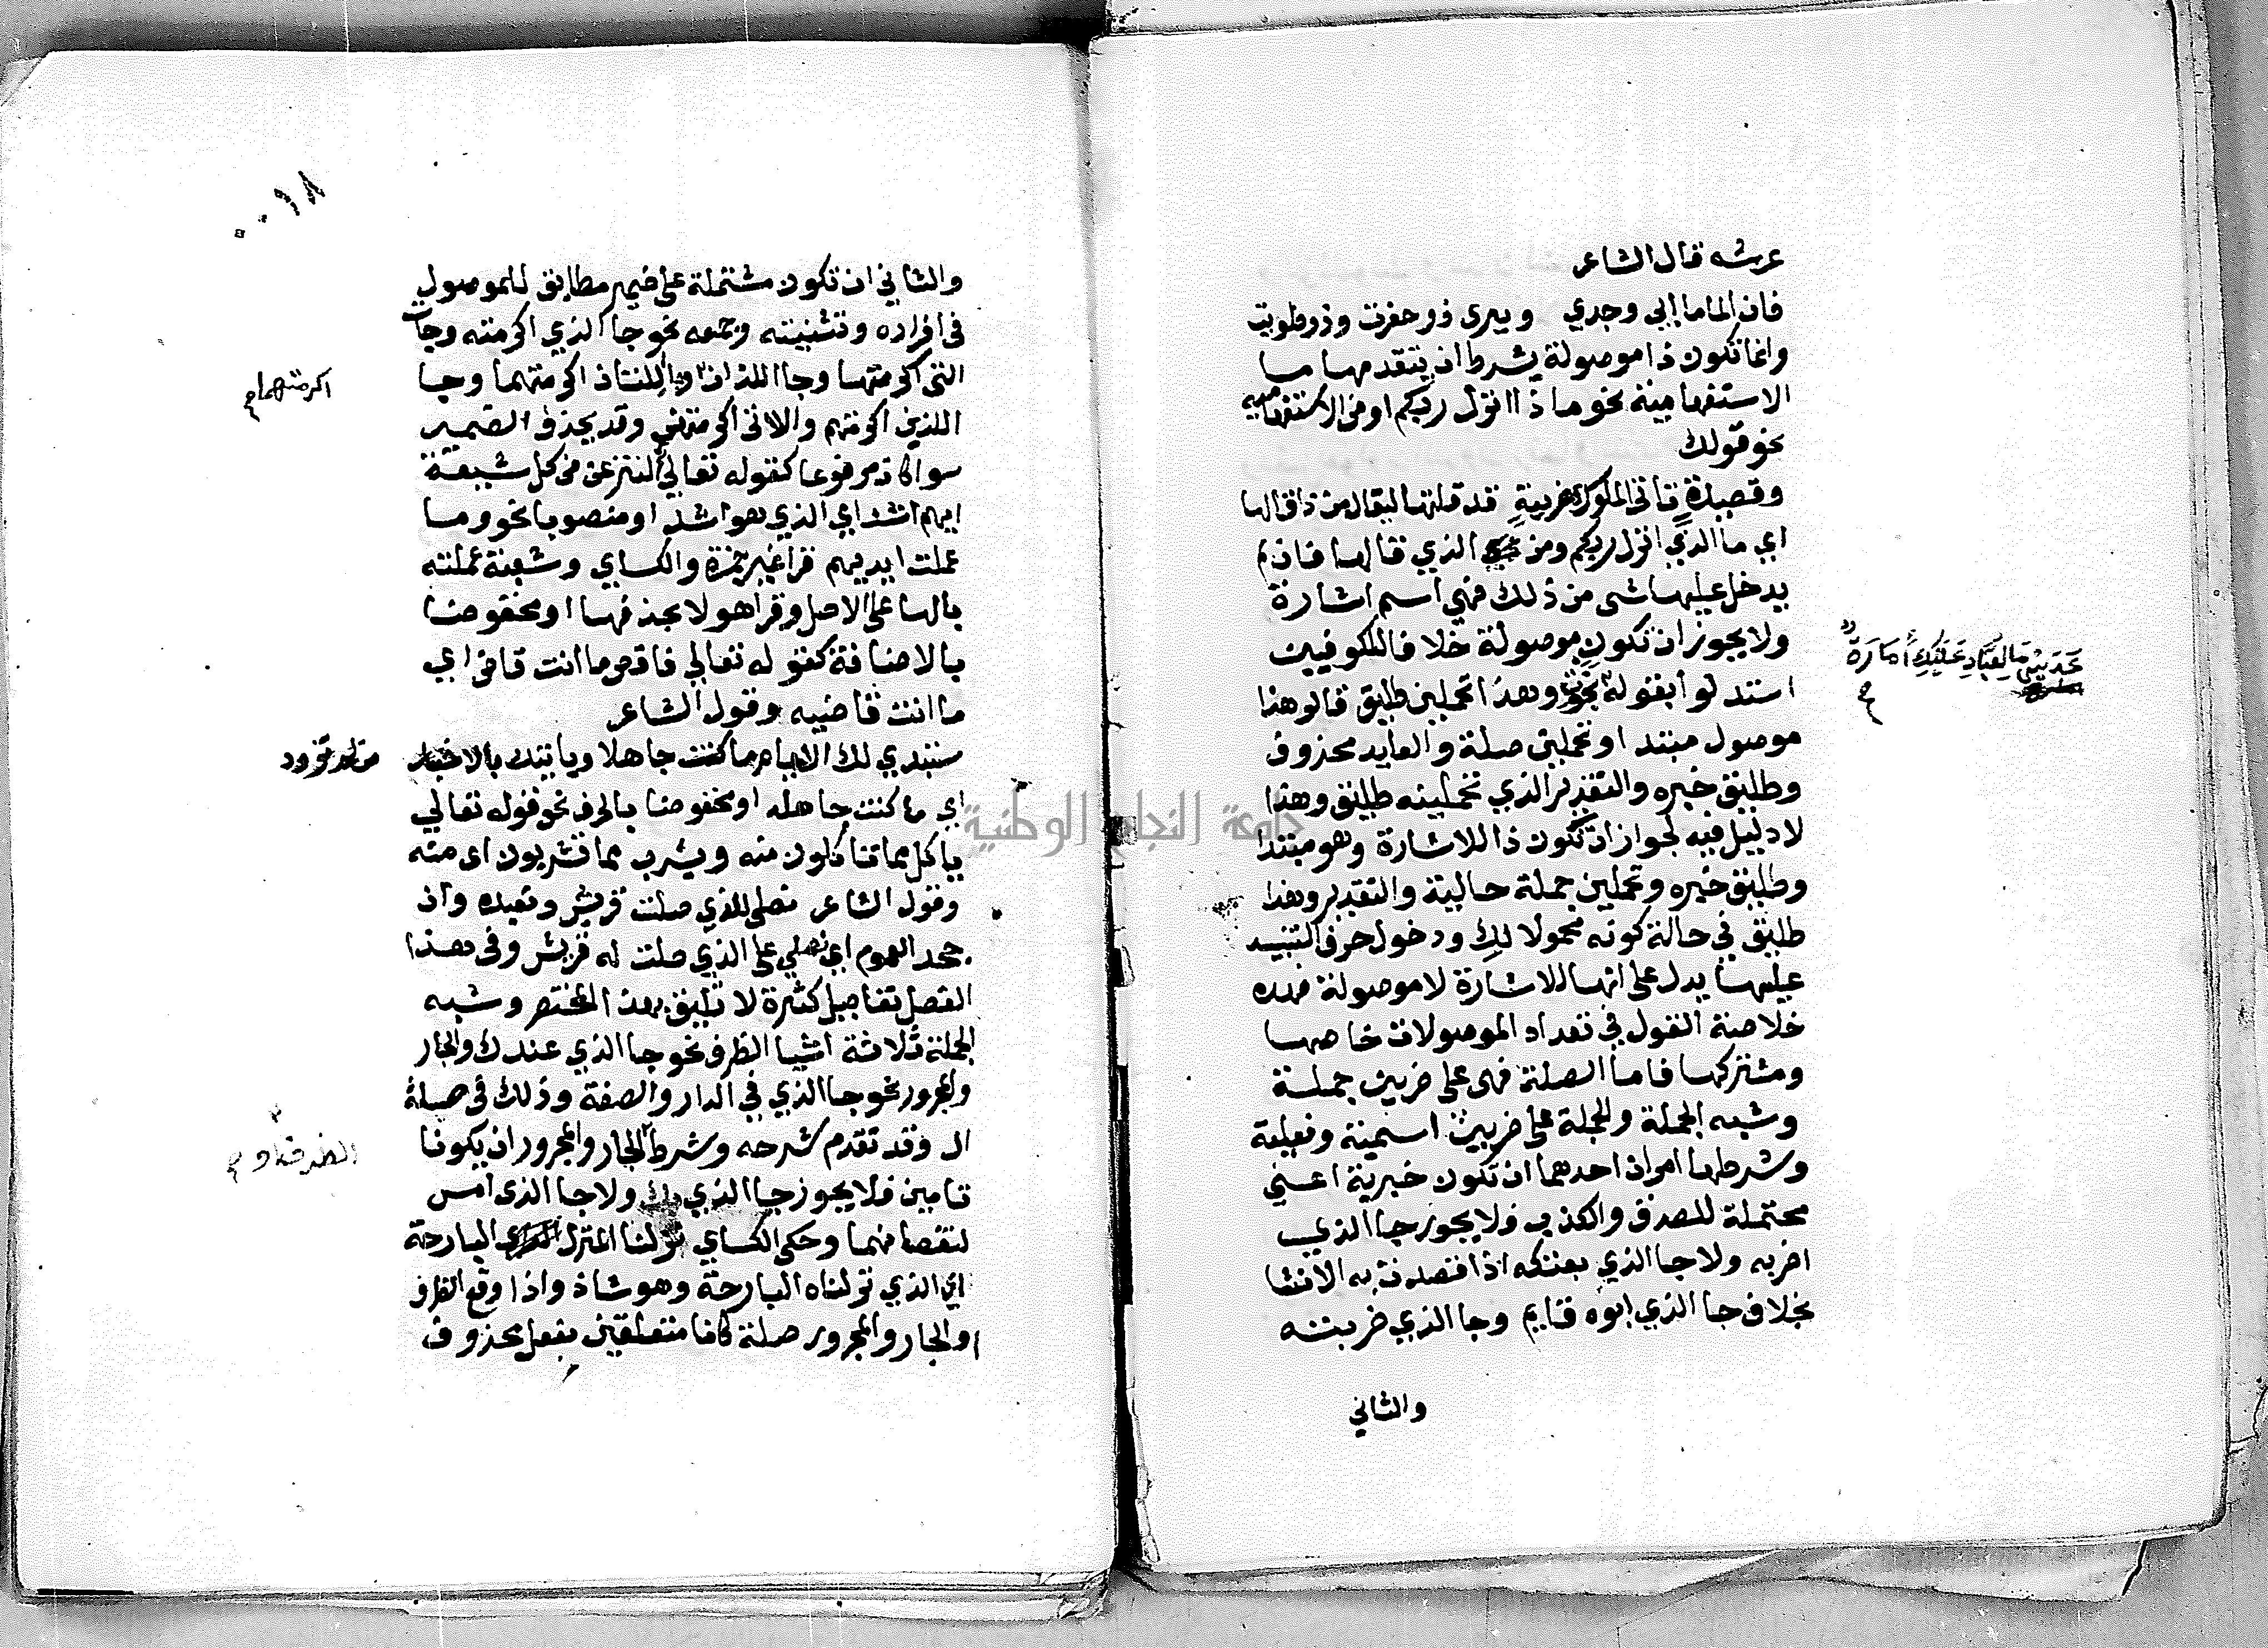 عرشه قال الشاعر
فان الماما ابي وجدي وبيرى ذو حفرت وذو طويت
وانما تكون ذا موصولة بشرط ان يتقدمها ما
الاستفهامية نحو ماذا انزل ربكم او من الاستفهامية
نحو قولك
وقصيدة تاتي الملوك غريبة قد قلتها ليقال من ذا قالها
اي ما الذي انزل ربكم ومن الذي قالها فان لم
يدخل عليها شي من ذلك فهي اسم اشارة
ولا يجوز ان تكون موصولة خلافا للكوفيين
استدلوا بقوله نجوت وهذا تحملين طليق قالو هذا
موصول مبتدا وتحملين صلة والعايد محذوف
وطليق خبره والتقدير الذي تحملينه طليق وهذا
لا دليل فيه لجواز ان تكون ذا للاشارة وهو مبتدا
وطليق خبره وتحملين جملة حالية والتقدير وهذا
طليق في حالة كونه محمولا لك ودخول حرف التنبيه
عليها يدل على انها للاشارة لا موصولة فهذه
خلاصة القول في تعداد الموصولات خاصها
ومشتركها فاما الصلة فهى على ضربين جملة
وشبه الجملة والجملة على ضربين اسمية وفعلية
وشرطها امران احدهما ان تكون خبرية اعني
محتملة للصدق والكذب فلا يجوز جا الذي
اضربه ولا جا الذي بعتكه اذا قصدت به الانشا
بخلاف جا الذي ابوه قايم وجا الذي ضربته
والثاني
عدس ما لعباد عليك أمارة
٠٠١٨
والثاني ان تكون مشتملة على ضمير مطابق للموصول
فى افراده وتثنيته وجمعه نحو جا الذي اكرمته وجات
التى اكرمتها وجا اللذان واللتان اكرمتهما وجا
اللذين اكرمتهم والاتى اكرمتهن وقد يحذف الضمير
سوا كان مرفوعا كقوله تعالي لننزعن من كل شيعة
ايهم اشد اي الذي هو اشد او منصوبا نحو وما
عملت ايديهم قرا غير حمزة والكساي وشعبة عملته
بالها على الاصل وقرا هولا بحذفها او مخفوضا
بالاضافة كقوله تعالي فاقض ما انت قاض اي
ما انت قاضيه وقول الشاعر
ستبدي لك الايام ما كنت جاهلا وياتيك بالاخبار من لم تزود
اي ما كنت جاهله او مخفوضا بالحرف نحو قوله تعالي
ياكل مما تاكلون منه ويشرب مما تشربون اى منه
وقول الشاعر نصلى للذي صلت قريش ونعبده وان
جحد العموم اي نصلي على الذي صلت له قريش وفى هذا
الفصل تفاصيل كثيرة لا تليق بهذا المختصر وشبه
الجملة ثلاثة اشيا الظرف نحو جا الذي عندك والجار
والمجرور نحو جا الذي في الدار والصفة وذلك فى صلة
ال وقد تقدم شرحه وشرط الجار والمجرور ان يكونا
تامين فلا يجوز جا الذي بك ولا جا الذى امس
لنقصانهما وحكى الكساي نزلنا المنزل الذي البارحة
اي الذي نزلناه البارحة وهو شاذ واذا وقع الظرف
او الجار والمجرور صلة كانا متعلقين بفعل محذوف
اكرمتهما
الظرف او
جامعة النجاح الوطنية